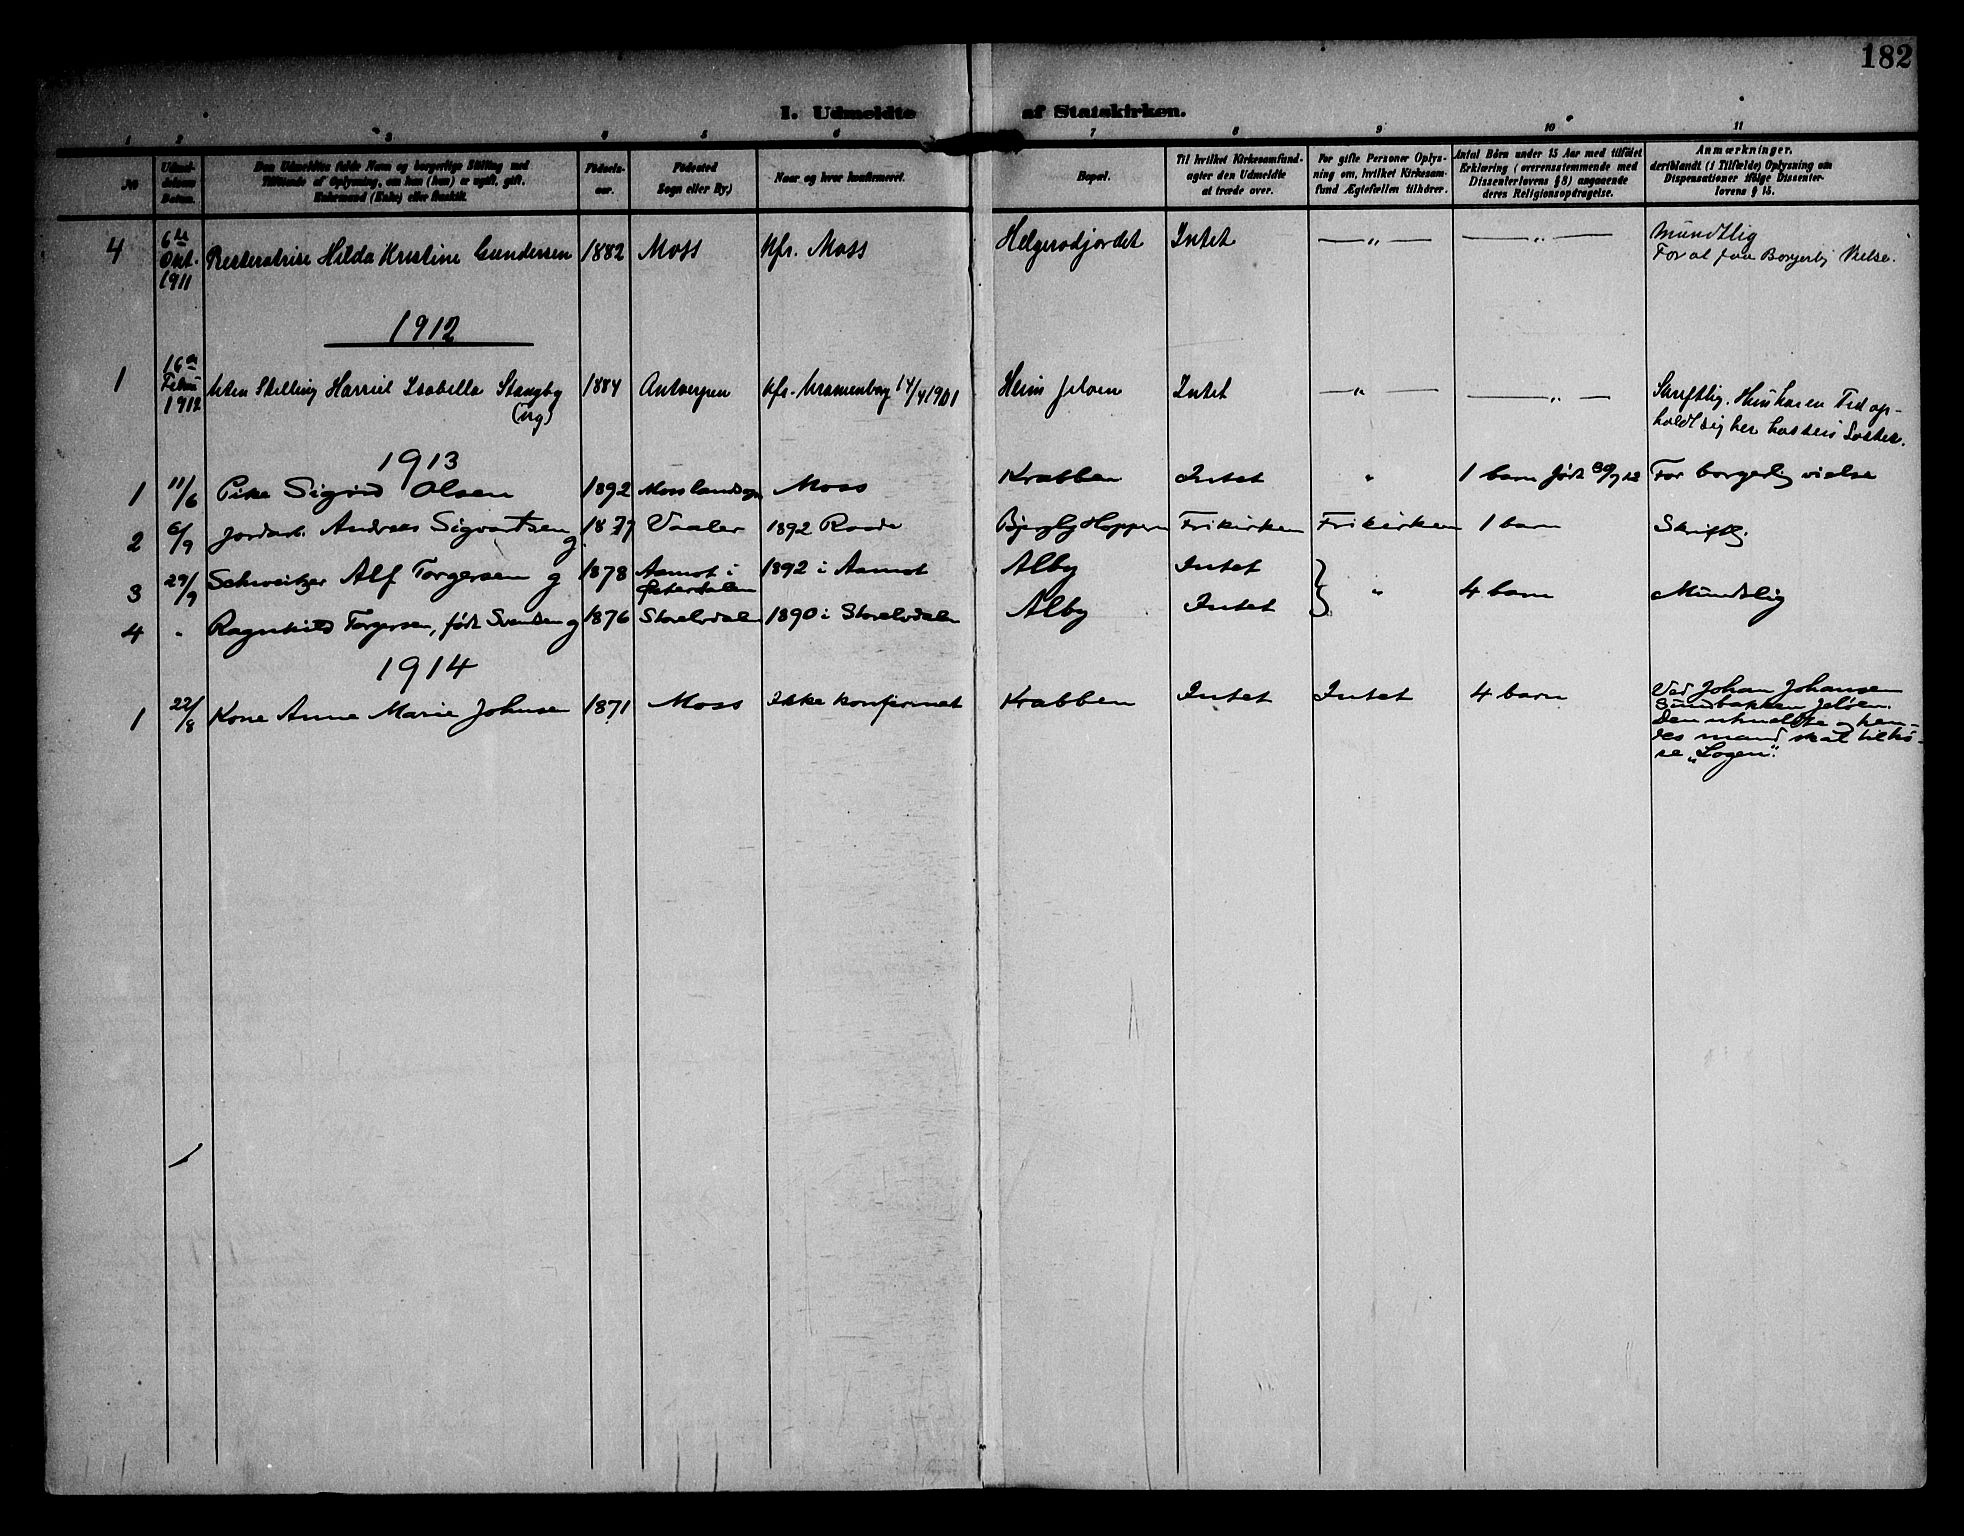 182
I. Udmeldte af Statskirken.
1 2 3 4 5 6 7 8 9 10 11
No
Udmel-
delsens
Datum.
Den Udmeldtes fulde Navn og borgerlige Stilling med
Tilföiende af Oplysning, om han (hun) er ugift, gift,
Enkemand (Enke) eller fraskilt.
Födsels-
aar.
Födested
Sogn eller By)
Naar og hvor konfirmeret.
Bopæl.
Til hvilket Kirkesamfund-
agter den Udmeldte
at træde over.
For gifte Personer Oplys-
ning om, hvilket Kirkesam-
fund Ægtefællen tilhörer.
Antal Börn under 15 Aar med tilföiet
Erklæring (overensstemmende med
Dissenterlovens § 8) angaaende
deres Religionsopdragelse.
Anmærkninger.
deriblandt (i Tilfælde) Oplysning om
Dispensationer ifölge Dissenter-
lovens § 15.
4 6te Okt. 1911 Hilda Kristine Gundersen 1882 Moss Kfr. Moss Helgerødjordet Intet —„— —„— Mundtlig
For at faa Borgerlig Vielse.
1912
1 16de Febru 1912 Uden Stilling Harriet Isabella Stangby 1884 Antverpen Kfr. 14/4 1901 Heim Jeløen Intet —„— —„— Skriftlig. Hun har en Tid op-
(ug) holdt sig her hos sin Søster.
1913
1 11/6 Pike Sigrid Olsen 1892 Moss landsogn Moss Krabben Intet „ 1 barn født 30/9 12 For borgerlig vielse
2 6/9 Jordarb. Andreas Sigvartsen g. 1877 Vaaler 1892 Raade Frikirken Frikirken 1 barn Skriftlig.
3 29/9 Schweitzer Alf Torgersen g 1878 Aamot i Østerdalen 1892 i Aamot Alby Intet „ 4 barn Mundtlig
4 „ Ragnhild Torgersen, født Svendsen g 1876 Storelvdalen 1890 i Storelvdalen Alby Intet
1914
1 22/8 Kone Anne Marie Johnsen 1871 Moss Ikke konfirmert Krabben Intet Intet 4 barn Ved Johan Johansen
Sundbakken Jeløen.
Den utmeldte og hen-
des mand skal tilhø-
re „Logen".